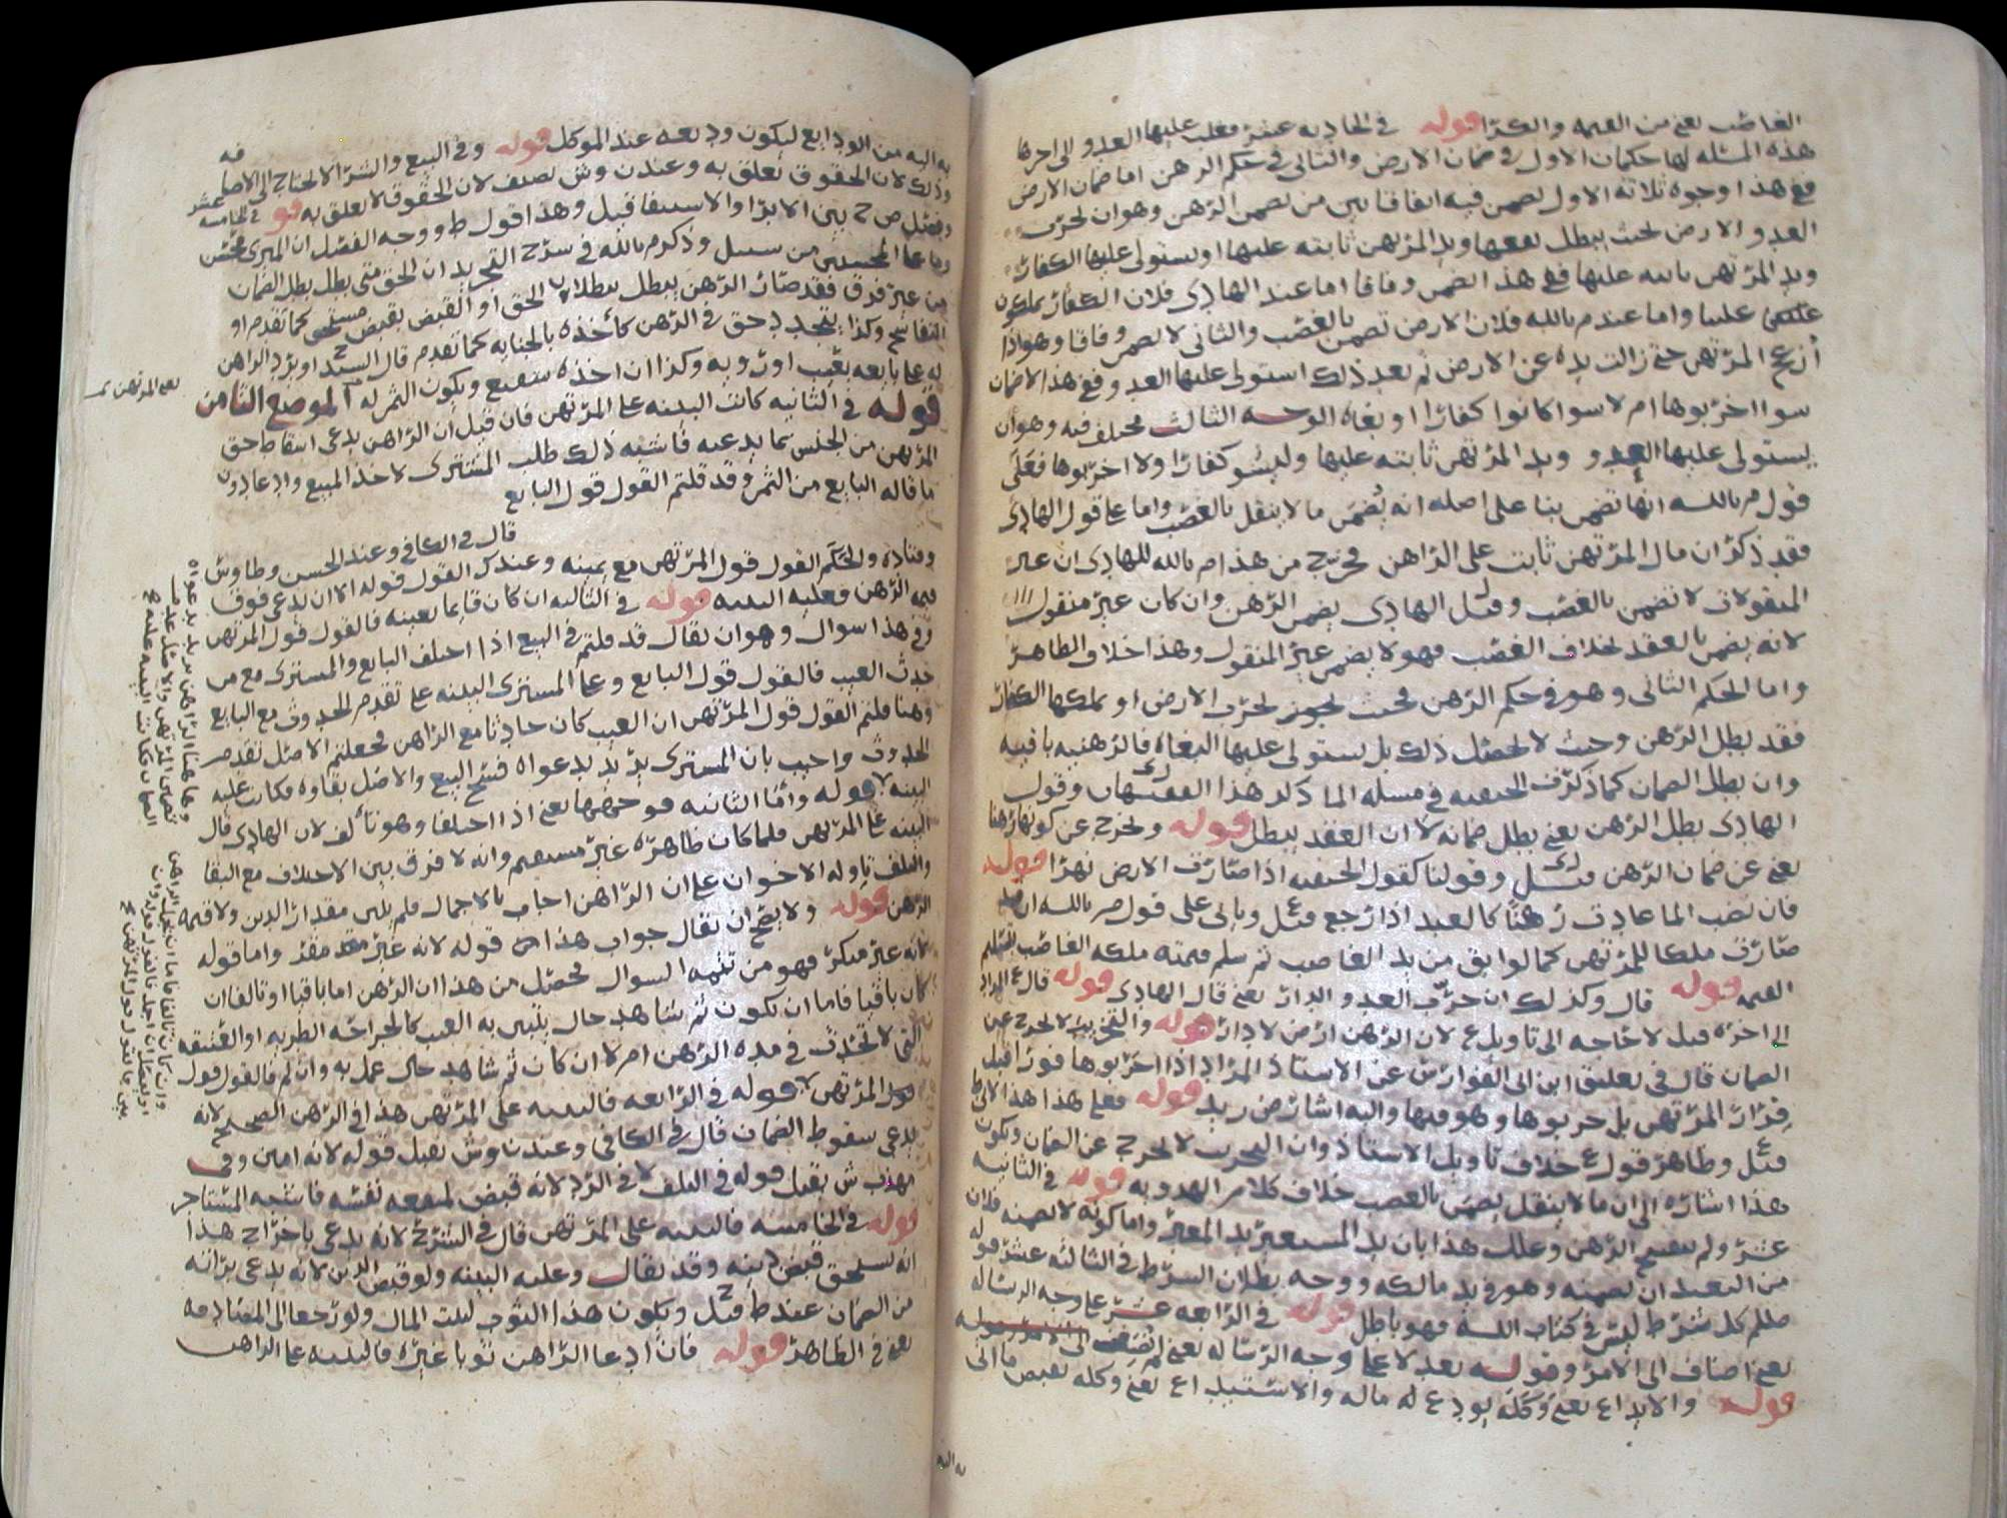 الغاصب يعني من القيمه والكرا قوله في الحاديه عشر وغلب عليها العدو الى اخرها
هذه المسئله لها حكمان الاول في ضمان الارض والثاني في حكم الرهن اما ضمان الارض
ففي هذا وجوه ثلاثه الاول يضمن فيه اتفاقا بين من يضمن الرهن وهو ان تخرب
العدو الارض بحيث يبطل نفعها ويد المرتهن ثابته عليها او يستولي عليها الكفار
ويد المرتهن ثابته عليها ففي هذا يضمن وفاقا اما عند الهادي فلان الكفار يملكون
علينا واما عند م بالله فلان الارض تضمن بالغصب والثاني لا يضمن وفاقا وهو اذا
أزعج المرتهن حتى زالت يده عن الارض ثم بعد ذلك استولى عليها العدو ففي هذا لا ضمان
سوا اخربوها ام لا سوا كانوا كفارا او بغاه الوجه الثالث مختلف فيه وهو ان
يستولي عليها العدو ويد المرتهن ثابته عليها وليسو كفارا ولا اخربوها فعلى
قول م بالله انها تضمن بنا على اصله انه يضمن ما لا ينقل بالغصب واما على قول الهادي
فقد ذكر ان مال المرتهن ثابت على الراهن فخرج من هذا م بالله للهادي ان غير
المنقولات لا تضمن بالغصب وقيل الهادي يضمن الرهن وان كان غير منقول
لانه يضمن بالعقد بخلاف الغصب فهو لا يضمن غير المنقول وهذا خلاف الظاهر
واما الحكم الثاني وهو في حكم الرهن فحيث تخرب الارض او يملكها الكفار
فقد بطل الرهن وحيث لا يحصل ذلك بل يستولي عليها البغاه فالرهنيه باقيه
وان بطل الضمان كما ذكرت الحنفيه في مسئله الما ذكر هذا الفقيهان وقول
الهادي بطل الرهن يعني بطل ضمانه لا ان العقد يبطل قوله وتخرج عن كونها رهنا
يعني عن ضمان الرهن قيل وقولنا كقول الحنفيه اذا صارت الارض نهرا قوله
فان نضب الما عادت رهنا كالعبد اذا رجع قيل وياتي على قول م بالله ان
صارت ملكا للمرتهن كما لو ابق من يد الغاصب ثم سلم قيمته ملكه الغاصب بتسليم
القيمه قوله قال وكذلك ان خرب العدو الدار يعني قال الهادي قوله قال
الى اخره قيل لا حاجه الى تاويل ع لان الرهن ارض لا دار قوله والتخريب لا تخرج عن
الضمان قال في تعليق ابن ابي الفوارس عن الاستاذ المراد اذا اخربوها فورا قبل
فرار المرتهن بل خربوها وهو فيها واليه اشار ض زيد قوله فعلى هذا
قيل وظاهر قول ع خلاف تاويل الاستاذ وان التخريب لا تخرج عن الضمان ويكون
هذا اشاره الى ان ما لا ينقل يضمن بالغصب خلاف كلام الهدويه قوله في الثانيه
عشر ولم ينفسخ الرهن وعلل هذا بان يد المستعير يد المعير واما كونه لا يضمنه فلان
من البعيد ان يضمنه وهو في يد مالكه ووجه بطلان الشرط في الثالثه عشر قوله
صللم كل شرط ليس في كتاب الله فهو باطل قوله في الرابعه عشر على وجه الرساله
يعني اضاف الى الامر وقوله بعد لا على وجه الرساله يعني لم يضف الى الامر
قوله والايداع يعني وكله يودع له ماله والاستيداع يعني وكله يقبض ما اتى
به اليه
به اليه من الودايع ليكون وديعه عند الموكل قوله وفي البيع والشرا لا يحتاج الى الاضافه
وذلك لان الحقوق تعلق به وعند ن وش يضيف لان الحقوق لا تعلق به قوله في الخامسه عشر
وفصل ص ح بين الابرا والاستيفا قيل وهذا قول ط ووجه الفصل ان المبري محسن
وما على المحسنين من سبيل وذكر م بالله في شرح التجريد ان الحق متى بطل بطل الضمان
من غير فرق فقد صار الرهن يبطل ببطلان الحق او القبض بقبض مستحق كما تقدم او
التفاسخ وكذا بتجدد حق في الرهن كأخذه بالجنايه كما تقدم قال السيد ح او برد الراهن
له على بايعه بعيب او رويه وكذا ان اخذه شفيع ويكون الثمن له الموضع الثامن
يعني المرتهن تمت
قوله في الثانيه كانت البينه على المرتهن فان قيل ان الراهن يدعي اسقاط حق
المرتهن من الحبس بما يدعيه فأشبه ذلك طلب المشتري لاخذ المبيع وادعا دون
ما قاله البايع من الثمن وقد قلتم القول قول البايع
قال في الكافي وعند الحسن وطاوس
وقتاده والحكم القول قول المرتهن مع يمينه وعند ك القول قوله الا ان يدعي فوق
قيمه الرهن فعليه البينه قوله في الثالثه ان كان قايما بعينه فالقول قول المرتهن
وفي هذا سوال وهو ان يقال قد قلتم في البيع اذا اختلف البايع والمشتري مع من
حدث العيب فالقول قول البايع وعلى المشتري البينه على تقدم الحدوث مع البايع
وهنا قلتم القول قول المرتهن ان العيب كان حادثا مع الراهن فجعلتم الاصل تقدم
الحدوث واجيب بان المشتري يريد بدعواه فسخ البيع والاصل بقاوه فكانت عليه
البينه
وها هنا الراهن يريد بدعواه
تضمين المرتهن والاصل عدم
الضمان فكانت البينه عليه
قوله وأما الثانيه فموضعها يعني اذا اختلفا وهو تالف لان الهادي قال
البينه على المرتهن فلما كان ظاهره غير مستقيم وانه لا فرق بين الاختلاف مع البقا
والتلف تاوله الاخوان على ان الراهن اجاب بالاجمال فلم يبين مقدار الدين ولا قيمه
الرهن قوله ولا يصح ان يقال جواب هذا من قوله لانه غير معد مقر واما قوله
لانه غير منكر فهو من تتمه السوال فحصل من هذا ان الرهن اما باقيا او تالفا ان
كان باقيا فاما ان يكون ثم شاهد حال يتبين به العيب كالجراحه الطريه او العتيقه
التي لا تحدث في مده الرهن ام لا ان كان ثم شاهد حال عمل به وان لم فالقول قول
المرتهن
وان كان تالفا فاما ان يجمل الراهن
او يفصل ان اجمل فالقول قوله وان
بين فالقول قول المرتهن
قوله في الرابعه فالبينه على المرتهن هذا في الرهن الصحيح لانه
يدعي سقوط الضمان قال في الكافي وعند ن وش يقبل قوله لانه امين وفي
مهذب ش يقبل قوله في التلف لا في الرد لانه قبض لمنفعه نفسه فاشبه المستاجر
قوله في الخامسه فالبينه على المرتهن قال في الشرح لانه يدعي باخراج هذا
انه يستحق قبض دينه وقد يقال وعليه البينه ولو قبض الدين لانه يدعي براته
من الضمان عند ط قيل ح ويكون هذا الثوب لبيت المال ولو رجعا الى المعتاد
يعني في الظاهر قوله فان ادعا الراهن ثوبا غيره فالبينه على الراهن